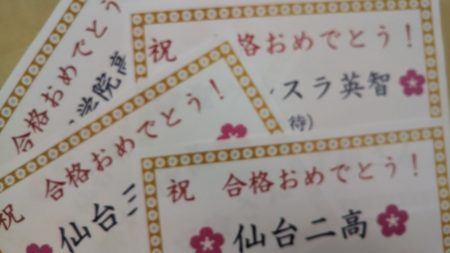 合格おめでとう
学院高
祝 格おめでとう！
スラ英智
待）
祝 合格おめでとう！
仙台三
祝 合格おめでとう！
仙台二高